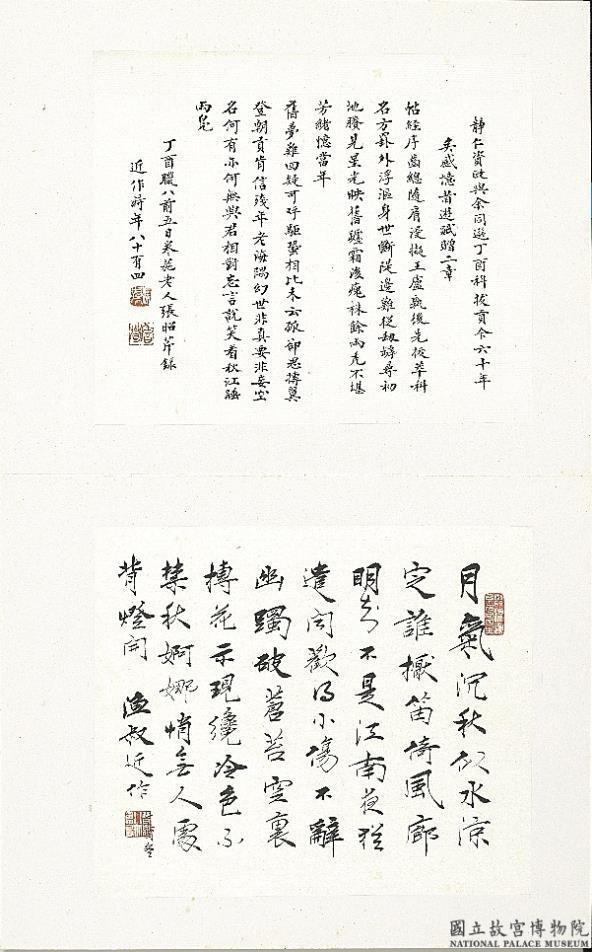 靜仁資政與余同選丁酉科拔貢今六十年
矣感憶昔遊祇贈二章
帖經序齒總隨肩漫擬王盧孰後先拔萃科
名方罫外浮漚身世斷從邊難從劫罅尋初
地賸見星光映舊躔霜後瘦株餘兩禿不堪
芳緒憶當年
舊夢難回疑可呼駏蛩相比未云孤卻思摶翼
登朝貢肯信殘年老海隅幻世非真要非妄空
名何有亦何無與君相對忘言說笑看秋江鷗
兩鳧
丁酉臘八前五日葵老人張昭芹錄
近作時年八十有四
月氣沉秋似水涼
定誰擫笛倚風廊
明知不是江南夜猶
遣閒歡得小傷不辭
幽躅破蒼苔空裏
摶花示現纔冷色不
禁秋婀娜悄無人處
背燈開 漁叔近作
國立故宮博物院
NATIONAL PALACE MUSEUM